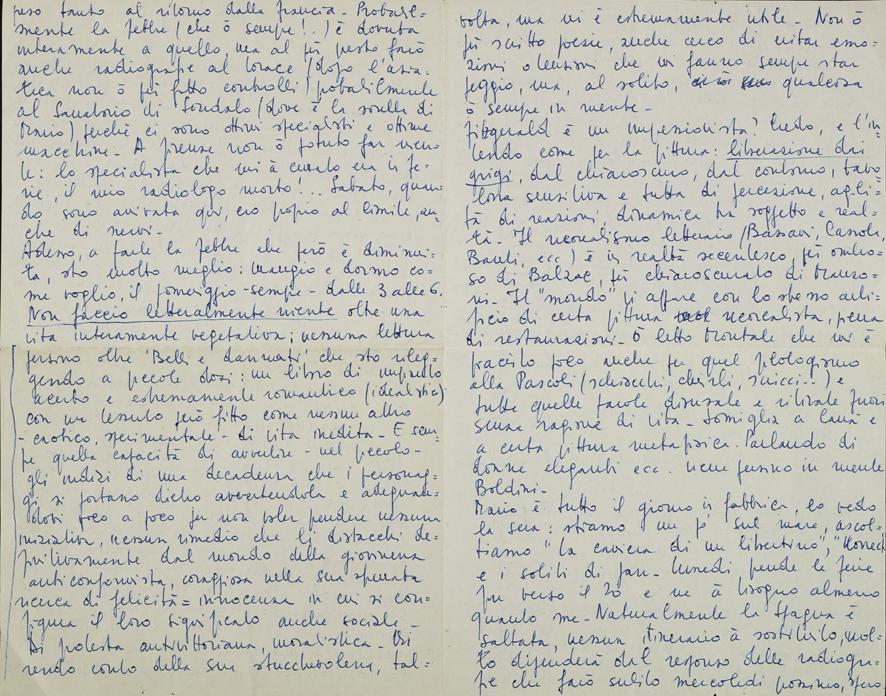 peso tanto al ritorno dalla Francia - Probabil=
mente la febbre (che ò sempre!..) è dovuta
interamente a quello, ma al più presto farò
anche radiografie al torace (dopo l'asia=
tica non ò più fatto controlli) probabilmente
al Sanatorio di Sondalo (dove è la sorella di
Mario) perché ci sono ottimi specialisti e ottime
macchine - A Firenze non ò potuto far nien=
te: lo specialista che mi à curato era in fe=
rie, il mio radiologo morto!.. Sabato, quan=
do sono arrivata qui, ero proprio al limite, an=
che di nervi -
Adesso, a parte la febbre che però è diminui=
ta, sto molto meglio: mangio e dormo co=
me voglio, il pomeriggio - sempre - dalle 3 alle 6.
Non faccio letteralmente niente oltre una
vita interamente vegetativa; nessuna lettura
persino oltre 'Belli e dannati' che sto rileg=
gendo a piccole dosi: un libro di impianto
acerbo e estremamente romantico (idealistico)
con un tessuto però fitto come nessun altro
- caotico, sperimentale - di vita inedita - E sem=
pre quella capacità di avvertire - nel piccolo -
gli indizi di una decadenza che i personag=
gi si portano dietro avvertendola e adeguan=
dovisi poco a poco per non voler prendere nessuna
iniziativa, nessun rimedio che li distacchi de=
finitivamente dal mondo della giovinezza
anticonformista, coraggiosa nella sua sfrenata
ricerca di felicità = innocenza in cui si con=
figura il loro significato anche sociale -
Di protesta antivittoriana, moralistica - Mi
rendo conto della sua stucchevolezza, tal=
volta, ma mi è estremamente utile - Non ò
più scritto poesie, anche cerco di evitar emo=
zioni o tensioni che mi fanno sempre star
peggio, ma, al solito, qualcosa
ò sempre in mente -
Fitzgerald è un impressionista? Credo, e l'in=
tendo come per la pittura: liberazione dai
grigi, dal chiaroscuro, dal contorno, tavo
lozza sensitiva e tutta di percezione, agili=
tà di reazioni, dinamica tra soggetto e real=
tà - Il neorealismo letterario (Bassani, Cassola,
Banti, ecc) è in realtà secentesco, più ombro=
so di Balzac, più chiaroscurato di Manzo=
ni - Il "mondo" vi appare con lo stesso arti=
ficio di certa pittura neorealista, piena
di restaurazioni - ò letto Montale che mi è
piaciuto poco anche per quel
alla Pascoli (schiocchi, chiurli, scricci..) e
tutte quelle parole disusate e ritirate fuori
senza ragione di vita - Somiglia a Carrà e
a certa pittura metafisica. Parlando di
donne eleganti ecc. viene persino in mente
Boldini -
Mario è tutto il giorno in fabbrica, lo vedo
la sera: stiamo un po' sul mare, ascol=
tiamo "La carriera di un libertino",
e i soliti di jazz - Lunedì prende le ferie
fin verso il 20 e ne à bisogno almeno
quanto me - Naturalmente la Spagna è
saltata, nessun itinerario à sostituirlo, mol=
to dipenderà dal responso delle radiogra=
fie che farò subito mercoledì prossimo, spero